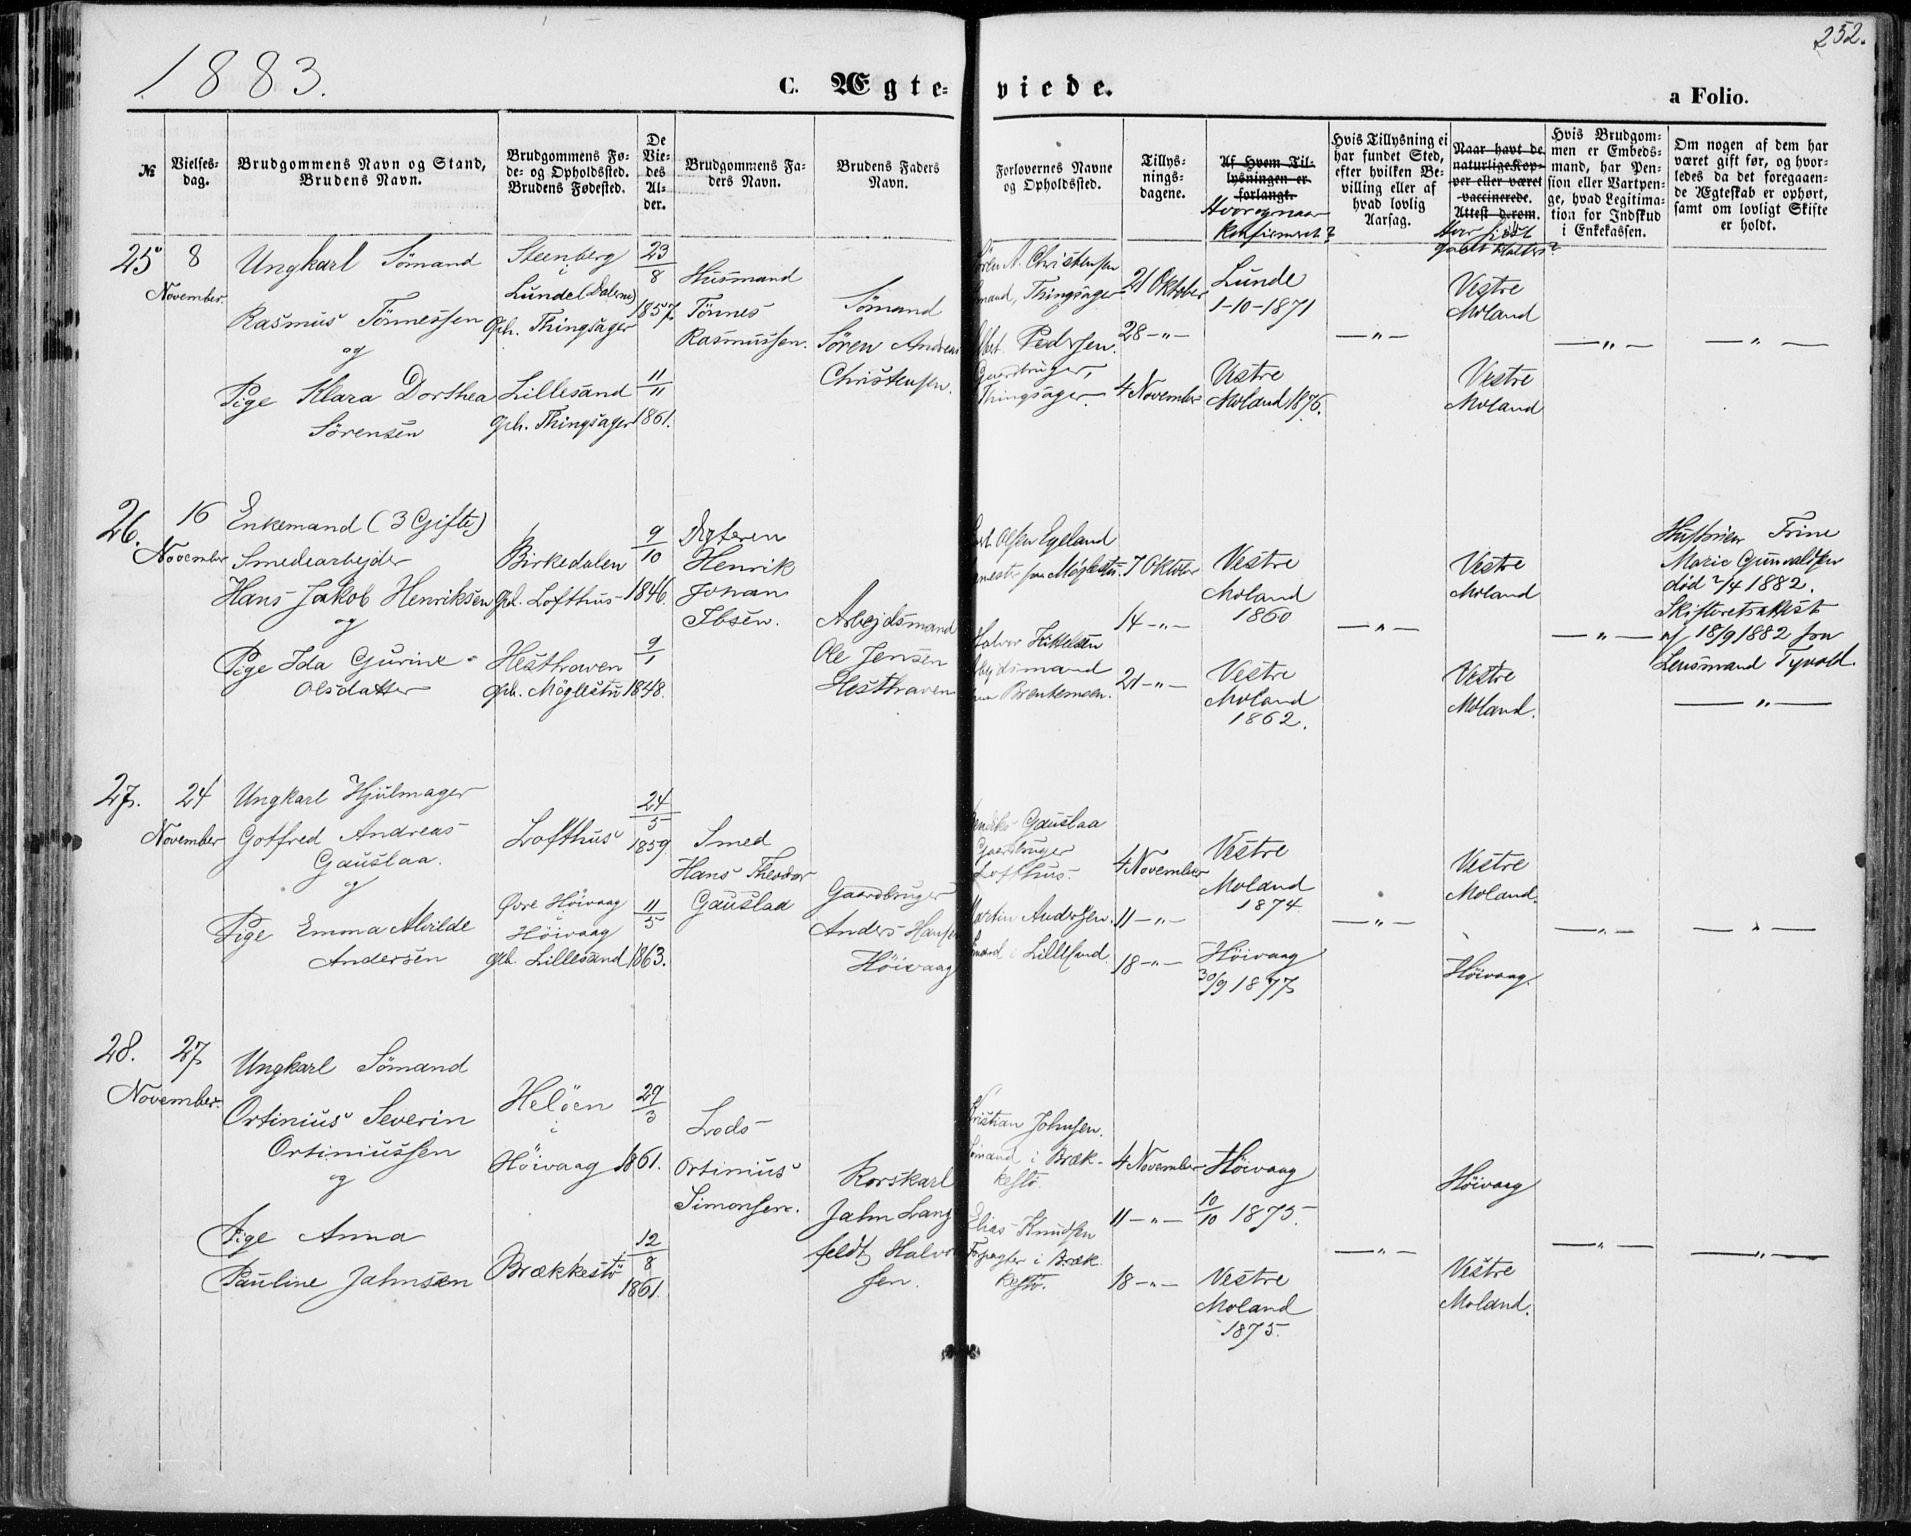 1883.
C. Ægte-
viede.
a Folio.
252.
№
Vielses-
dag.
Brudgommens Navn og Stand,
Brudens Navn.
Brudgommens Fø-
de- og Opholdssted.
Brudens Fødested.
De
Vie-
des
Al-
der.
Brudgommens Fa-
ders Navn.
Brudens Faders
Navn.
Forlovernes Navne
og Opholdssted.
Tillys-
nings-
dagene.
Af Hvem Til-
lysningen er
forlangt.
Hvor og naar
konfirmeret?
Hvis Tillysning ei
har fundet Sted,
efter hvilken Be-
villing eller af
hvad lovlig
Aarsag.
Naar havt de
naturlige Kop-
per eller været
vaccinerede.
Attest derom.
Hvor sidst
gaaet til Alters?
Hvis Brudgom-
men er Embeds-
mand, har Pen-
sion eller Vartpen-
ge, hvad Legitima-
tion for Indskud
i Enkekassen.
Om nogen af dem har
været gift før, og hvor-
ledes da det foregaaen-
de Ægteskab er ophørt,
samt om lovligt Skifte
er holdt.
25
8
November
Ungkarl Sömand
Rasmus Tönnessen
og
Pige Klara Dorthea
Sörensen
Steenberg
i
Lunde (Dalerne)
Oph. Thingsager
Lillesand
Oph. Thingsager
23
8
1857.
11
11
1861.
Husmand
Tönnes
Rasmussen.
Sömand
Sören Andreas
Christensen.
Sören A. Christensen
Sömand, Thingsager
Pedersen.
Gaardbruger,
Thingsager.
21 Oktober
28 -"-
4 November
Lunde
1-10-1871
Vestre
Moland 1876.
-"-
Vestre
Moland
Vestre
Moland
-"-
-"-
26.
16
November
Enkemand (3 Gifte)
Smedearbejder
Hans Jakob Henriksen
og
Pige Ida Gurine
Olsdatter
Birkedalen
Oph. Lofthus
Hesthaven
Oph. Möglestu
9
10
1846.
9
1
1848.
Henrik
Johan
Ibsen.
Arbejdsmand
Ole Jensen
Hesthaven
Olsen Egeland
Möglestu
Halvor
Arbejdsmand
7 Oktober
14 -"-
21 -"-
Vestre
Moland
1860
Vestre
Moland
1862.
-"-
Vestre
Moland
Vestre
Moland.
-"-
Hustruen Trine
Marie Gunvaldsen
död 2/4 1882.
Skifteretsattest
af 18/9 1882 fra
Lensmand Tyvold.
-"-
27.
24
November
Ungkarl Hjulmager
Gotfred Andreas
Gauslaa.
og
Pige Emma Alvilde
Andersen
Lofthus
Övre Höivaag
i
Höivaag
Oph. Lillesand
24
5
1859
11
5
1863.
Smed
Hans Theodor
Gauslaa
Gaardbruger
Anders Hansen
Höivaag
Gauslaa
Gaardbruger
Lofthus.
Martin Andersen.
Sömand i Lillesand.
4 November
11 -"-
18 -"-
Vestre
Moland
1874
Höivaag
30/9 1877
-"-
Vestre
Moland.
Höivaag.
-"-
-"-
28.
27
November.
Ungkarl Sömand
Ortinius Severin
Ortiniussen
og
Pige Anna
Pauline Jahnsen
Helöen
i
Höivaag
Brækkestö
29
3
1861.
12
8
1861.
Lods
Ortinius
Simonsen.
Rorskarl
Jahn Lang
feldt Halvor
sen.
Kristian Johnsen.
Sömand i Bræk-
kestö
Elias Knudsen
Forpagter i Bræk-
kestö.
4 November
11 -"-
18 -"-
Höivaag
10
10 1875.
Vestre
Moland
1875.
-"-
Höivaag
Vestre
Moland.
-"-
-"-